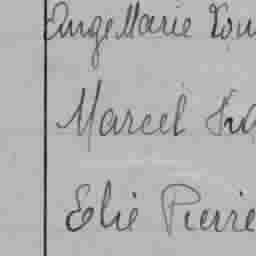 Ange Marie Lou
Marcel
Elie Pierre